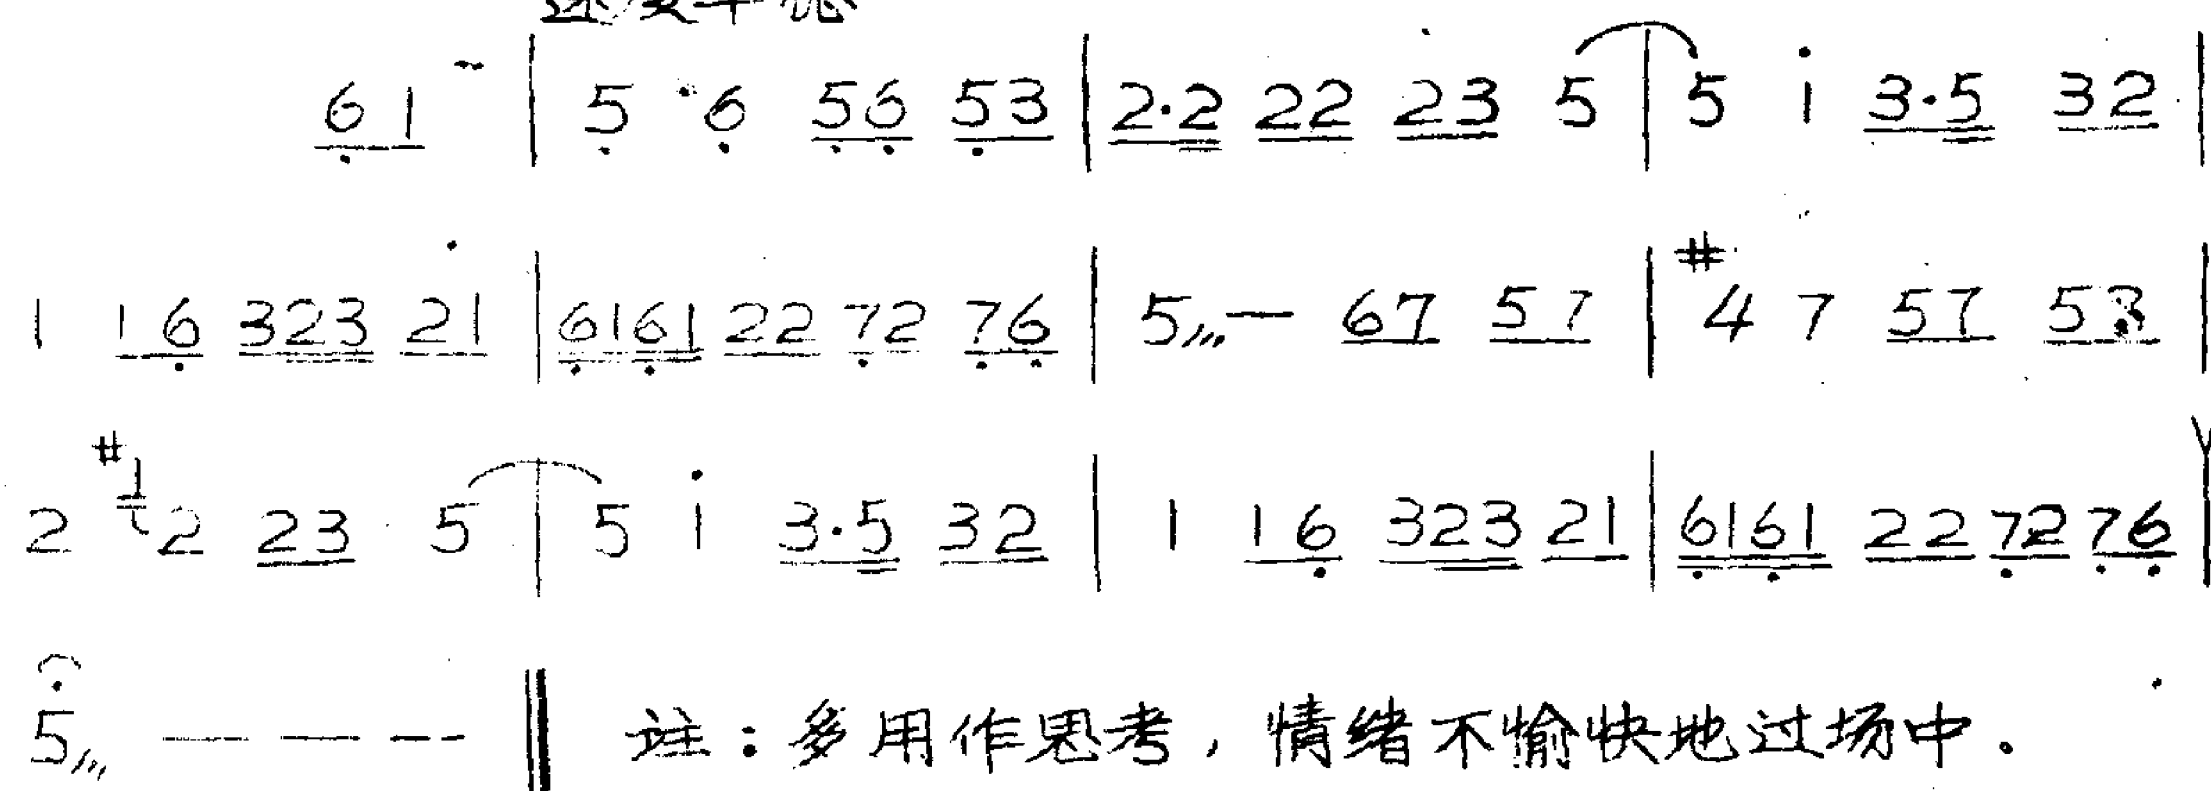 6̣1 | 5̣ 6̣ 5̣6̣ 5̣3 | 2·2 22 23 5 | 5 i 3·5 32 |
1 16̣ 323 21 | 6̣16̣1 22 7̣2 7̣6̣ | 5 — 67 57 | #4 7 57 53 |
2 #1 2 23 5 | 5 i 3·5 32 | 1 16̣ 323 21 | 6̣16̣1 22 7̣2 7̣6̣ |
5 — — — ‖ 注：多用作思考，情绪不愉快地过场中.